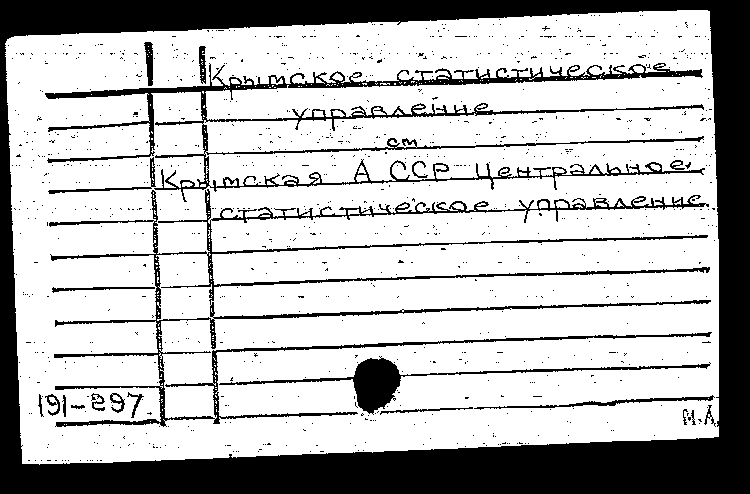 Крымское статистическое
управление
ст
Крымская АССР Центральное
статистическое управление
191-297
М.А.